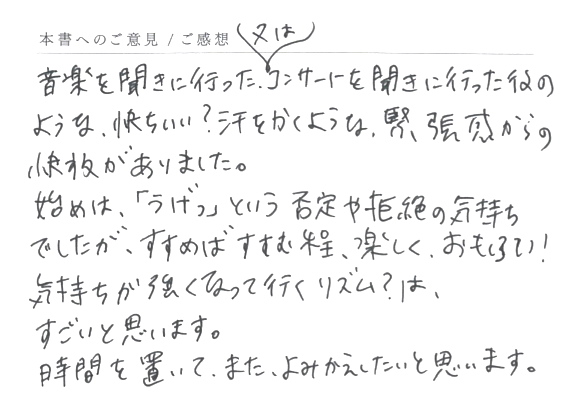 本書へのご意見 / ご感想
又は
音楽を聞きに行った、コンサートを聞きに行った後の
ような、快ちいい?汗をかくような、緊張感からの
快放がありました。
始めは、「うげっ」という否定や拒絶の気持ち
でしたが、すすめばすすむ程、楽しく、おもしろい!
気持ちが強くなって行くリズム?は、
すごいと思います。
時間を置いて、また、よみかえしたいと思います。